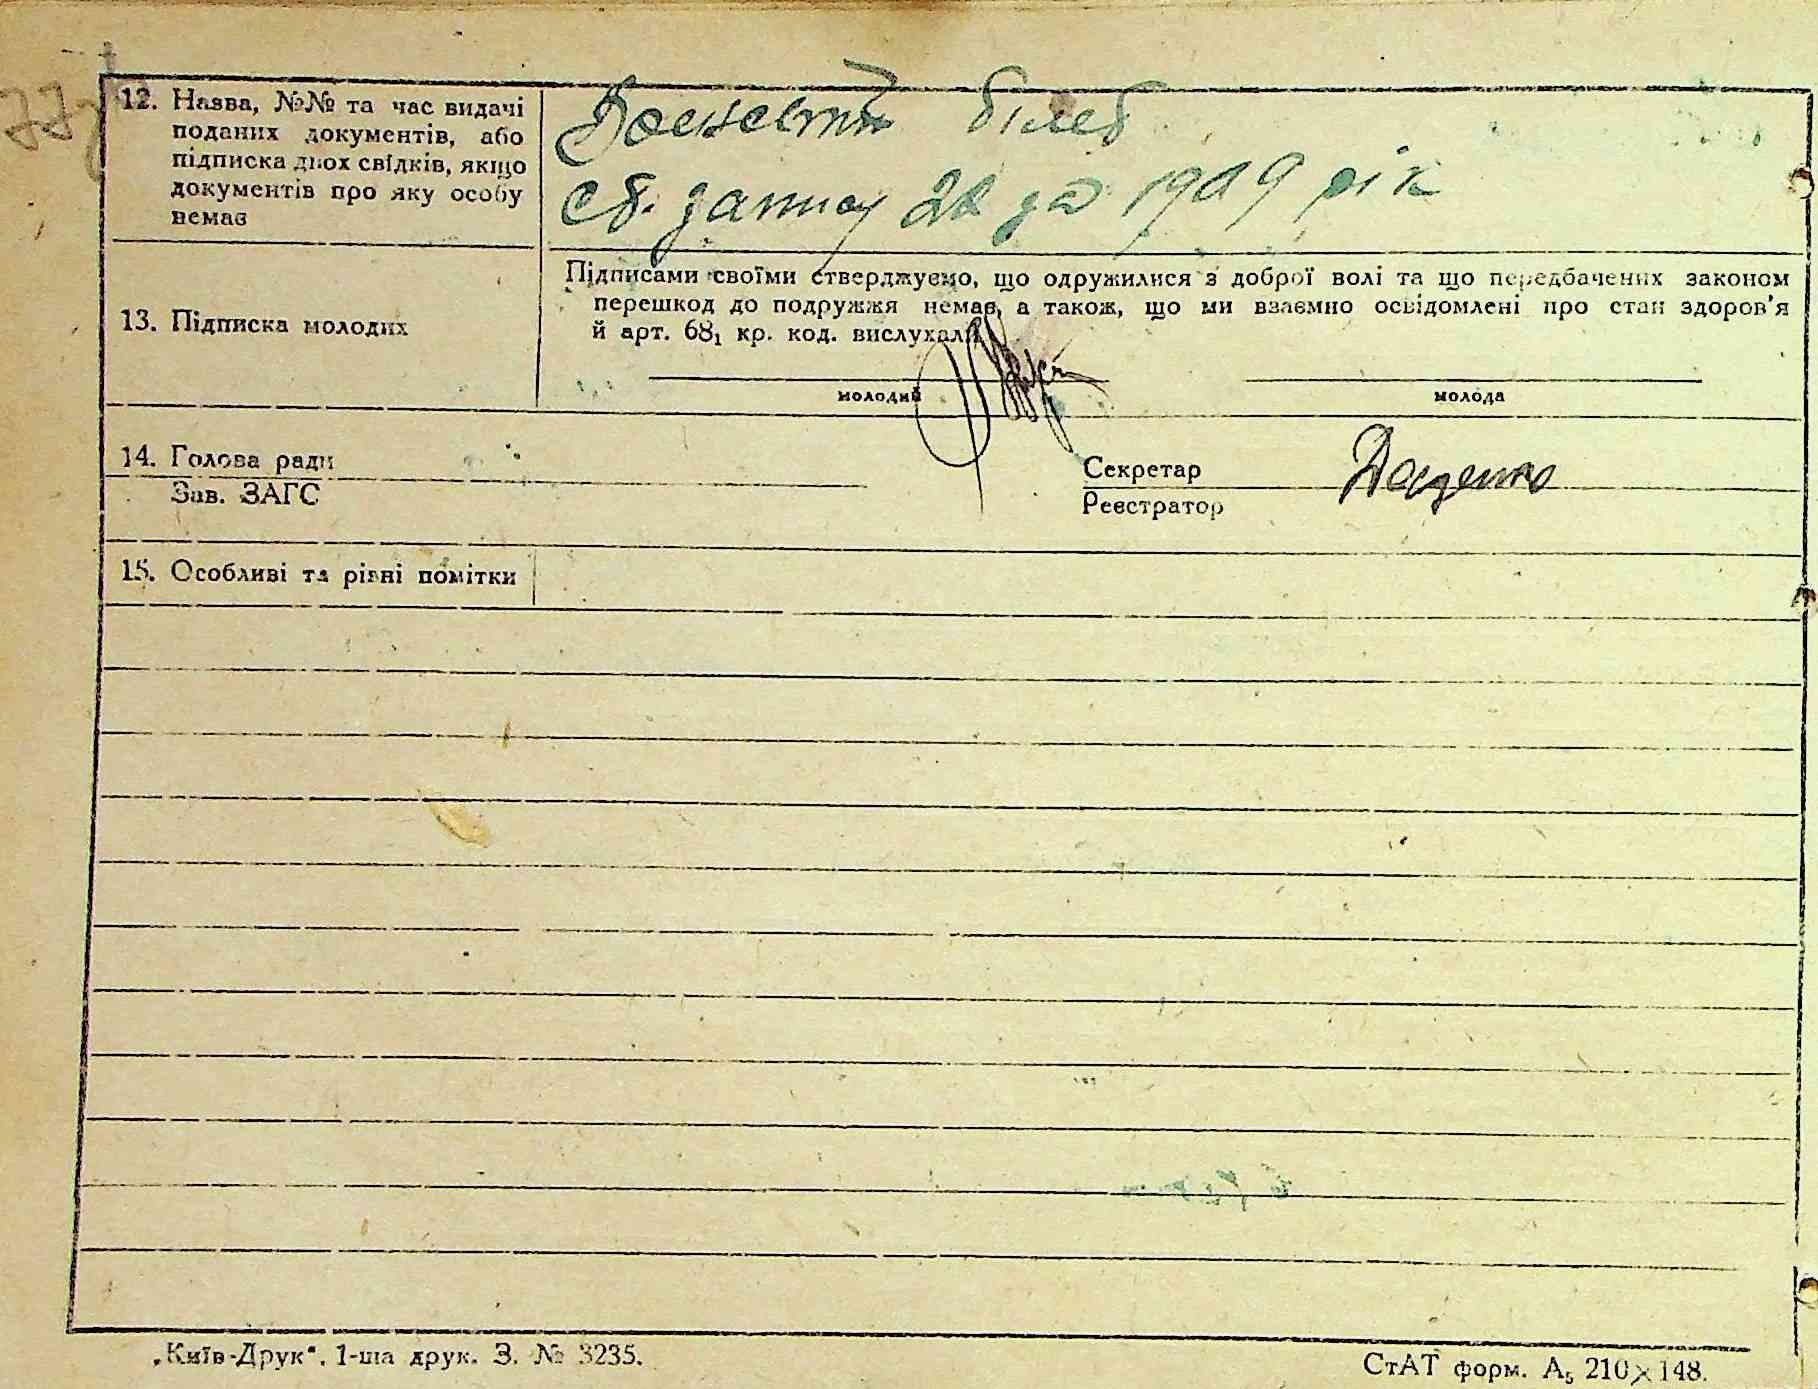 12. Назва, №№ та час видачі
поданих документів, або
підписка двох свідків, якщо
документів про яку особу
немає
білет
1909 рік
13. Підписка молодих
Підписами своїми стверджуємо, що одружилися з доброї волі та що передбачених законом
перешкод до подружжя немає, а також, що ми взаємно освідомлені про стан здоров'я
й арт. 68₁ кр. код. вислухали
молодий
молода
14. Голова ради
Зав. ЗАГС
Секретар
Реєстратор
15. Особливі та різні помітки
„Київ-Друк“. 1-ша друк. З. № 3235.
СтАТ форм. А₅ 210×148.